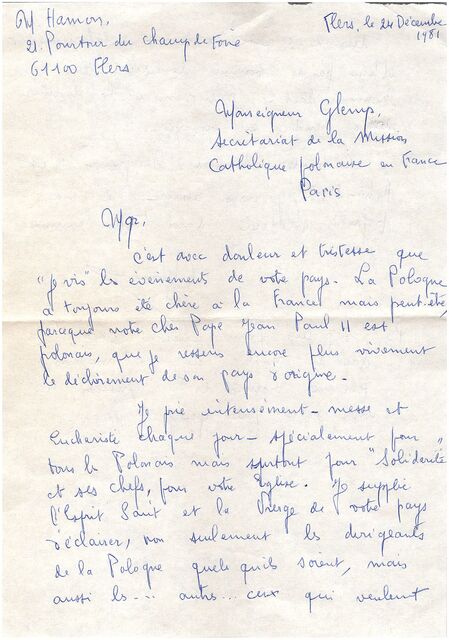 M. Hamon,
21. Pourtour du champ de Foire
61100 Flers
Flers, le 24 Décembre
1981
Monseigneur Glemp,
Secrétariat de la Mission
Catholique polonaise en France
Paris
Mgr,
C'est avec douleur et tristesse que
"je vis" les évènements de votre pays. La Pologne
a toujours été chère à la France mais peut-être,
parceque notre cher Pape Jean Paul II est
polonais, que je ressens encore plus vivement
le déchirement de son pays d'origine.
Je prie intensément - messe et
Eucharistie chaque jour - spécialement pour
tous les Polonais mais surtout pour "Solidarité"
et ses chefs, pour votre Eglise. Je supplie
l'Esprit Saint et la Vierge de votre pays
d'éclairer, non seulement les dirigeants
de la Pologne quels qu'ils soient, mais
aussi les... autres... ceux qui veulent